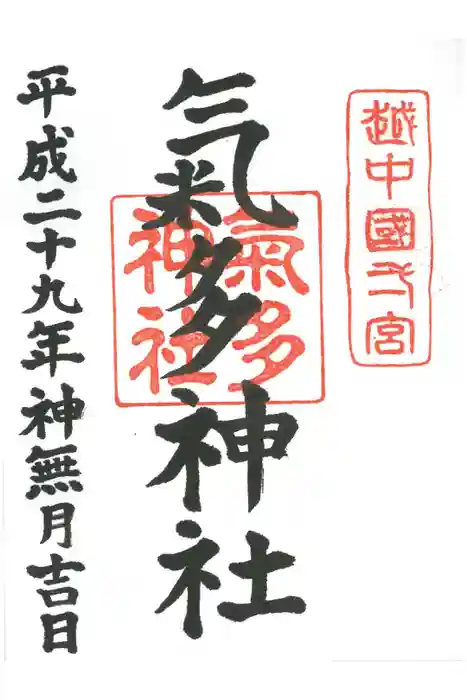 越中國一宮
氣多神社
氣多神社
平成二十九年神無月吉日